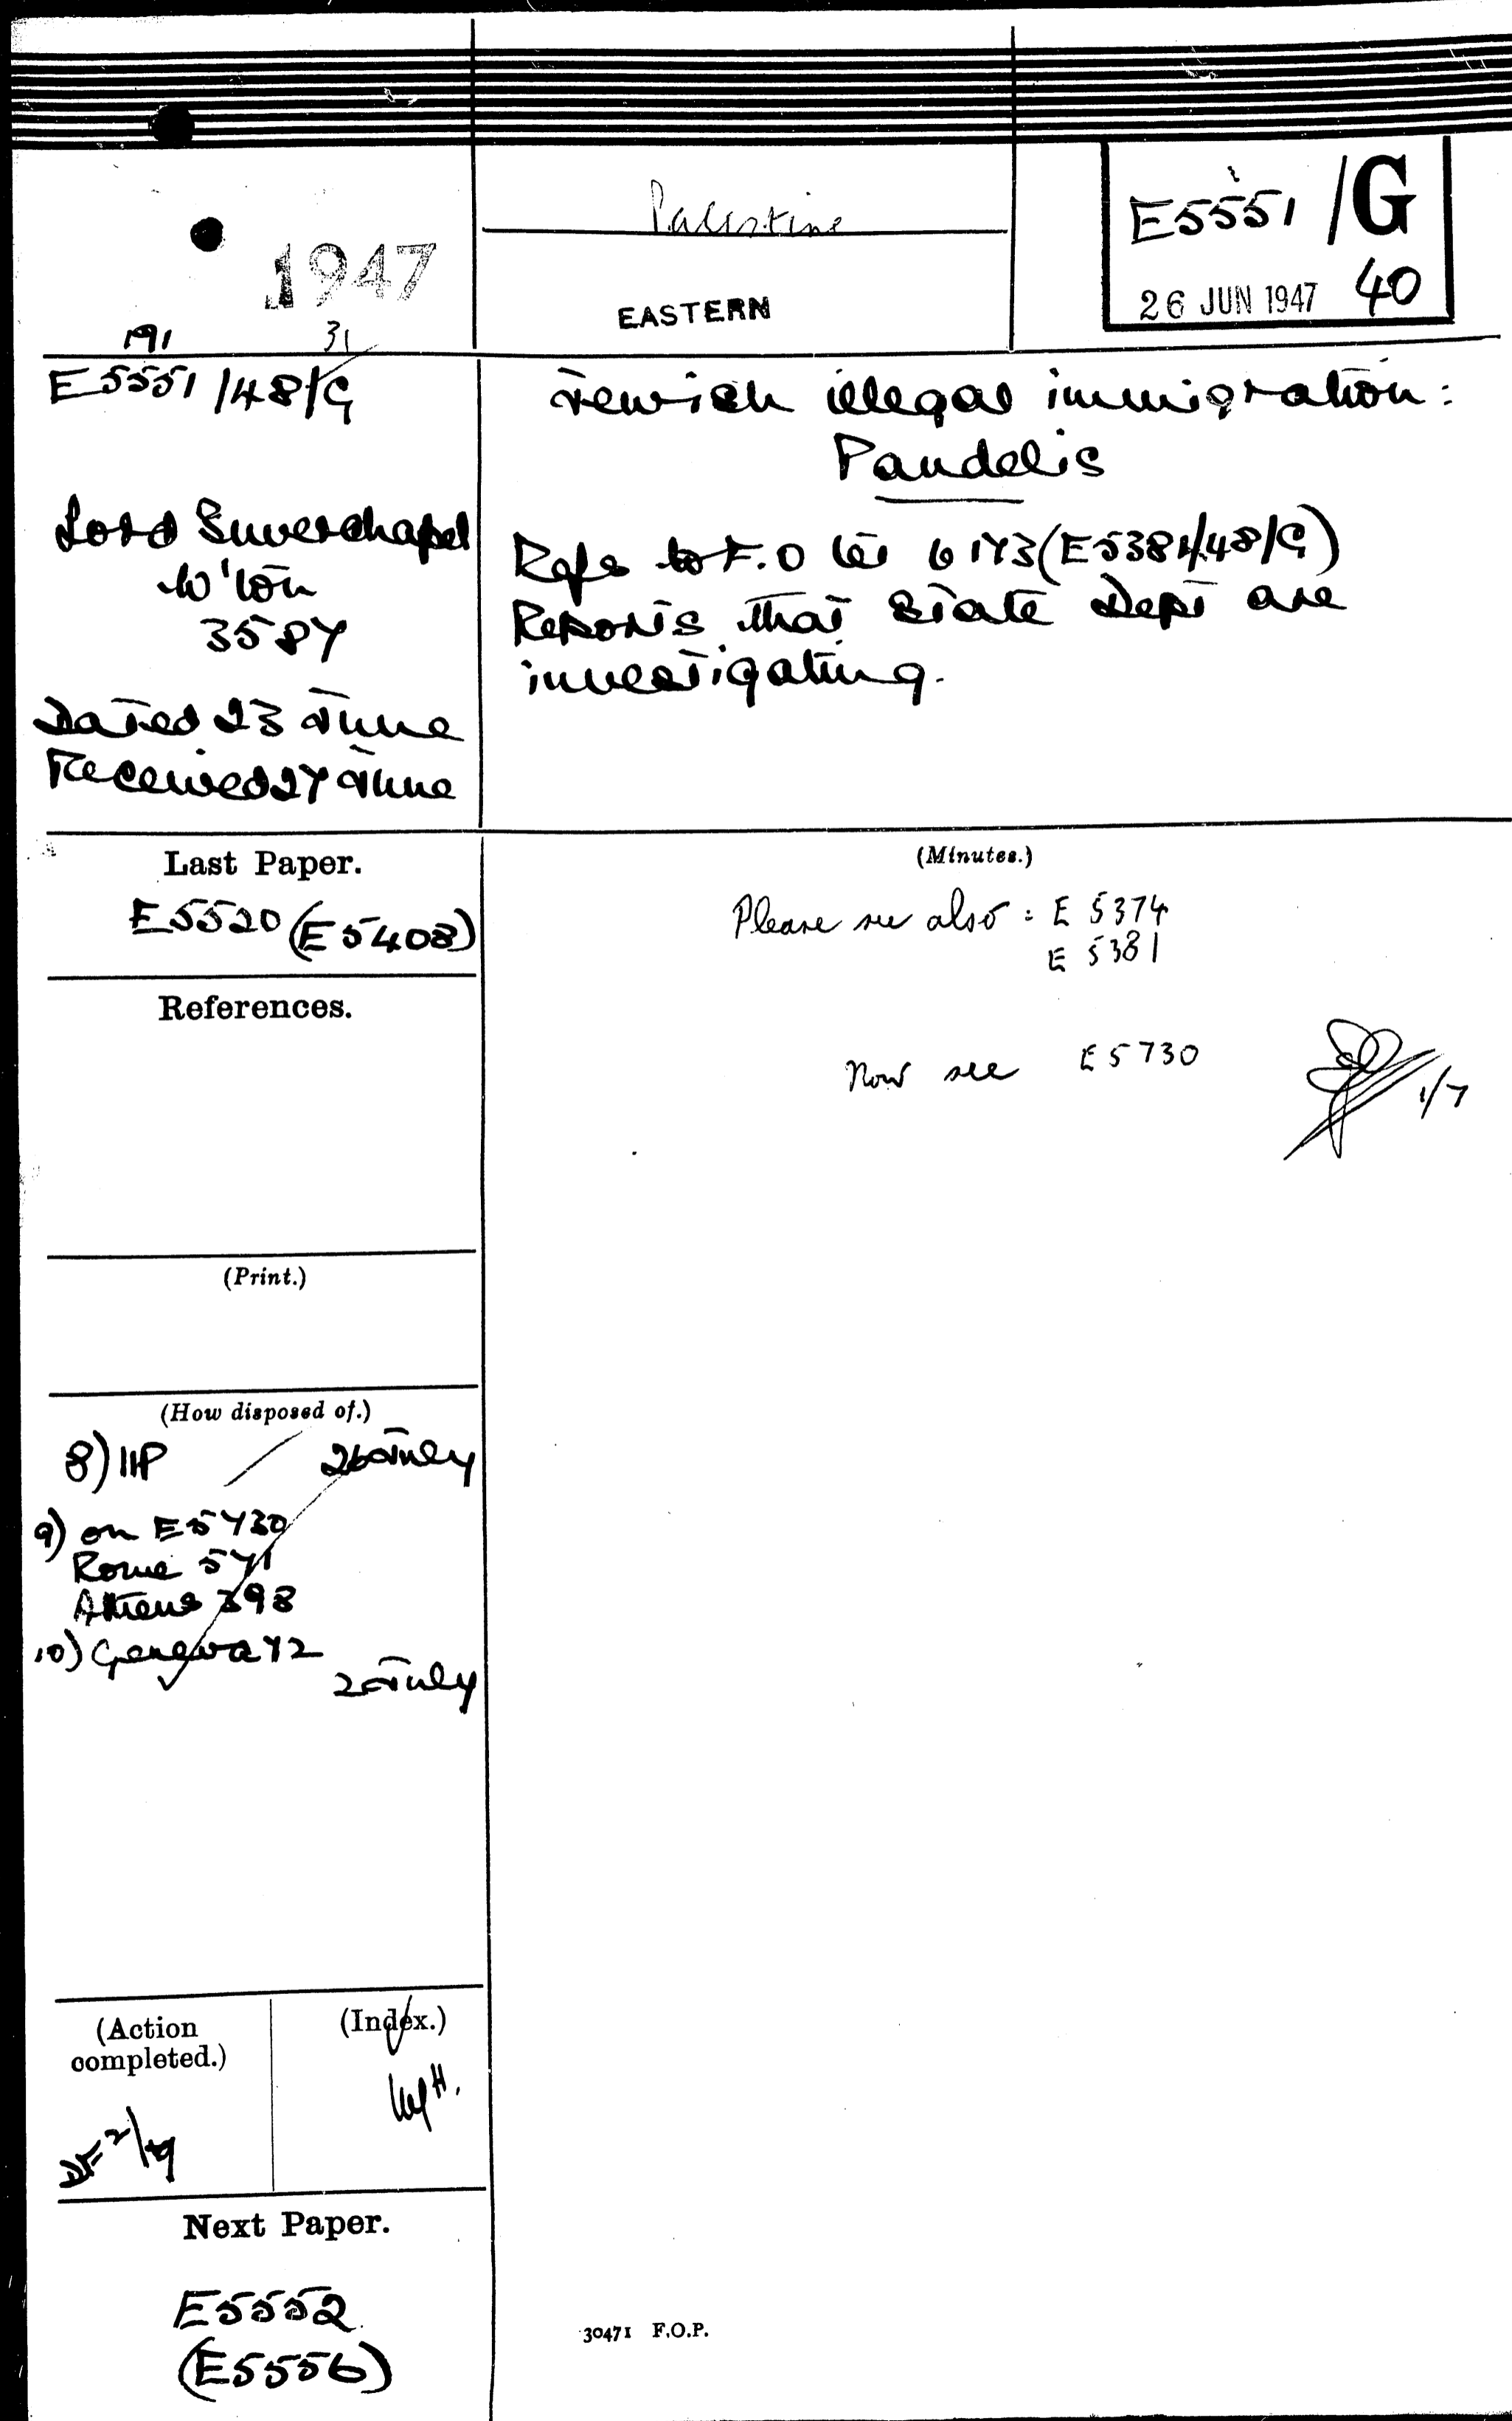 1947
Palestine
EASTERN
E5551 /G
26 JUN 1947 40
191 31
E5551/48/G
Lord Inverchapel
W'ton
3587
Dated 23 June
Received 27 June
Jewish illegal immigration:
Pandelis
Refs to F.O tel 6173 (E5381/48/G)
Reports that State Dept are
investigating.
Last Paper.
E5520 (E5408)
References.
(Print.)
(How disposed of.)
8)
26 July
9) on E5730
Rome 571
Athens 398
10) Geneva 72
2 July
(Action
completed.)
(Index.)
Next Paper.
E5552
(E5556)
(Minutes.)
Please see also: E 5374
E 5381
Now see E 5730
1/7
30471 F.O.P.